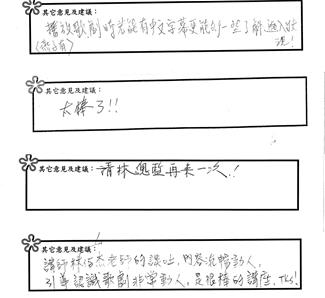 其它意見及建議：
播放歌劇時若能有中文字幕更能幻一些了解，進入狀
(然有)
況！
其它意見及建議：
太棒了!!
其它意見及建議：
請林總監再來一次.!
其它意見及建議：
講師林伯杰老師的談吐，內容流暢動人，
引導認識歌劇非常動人，是很棒的講座，Tks!